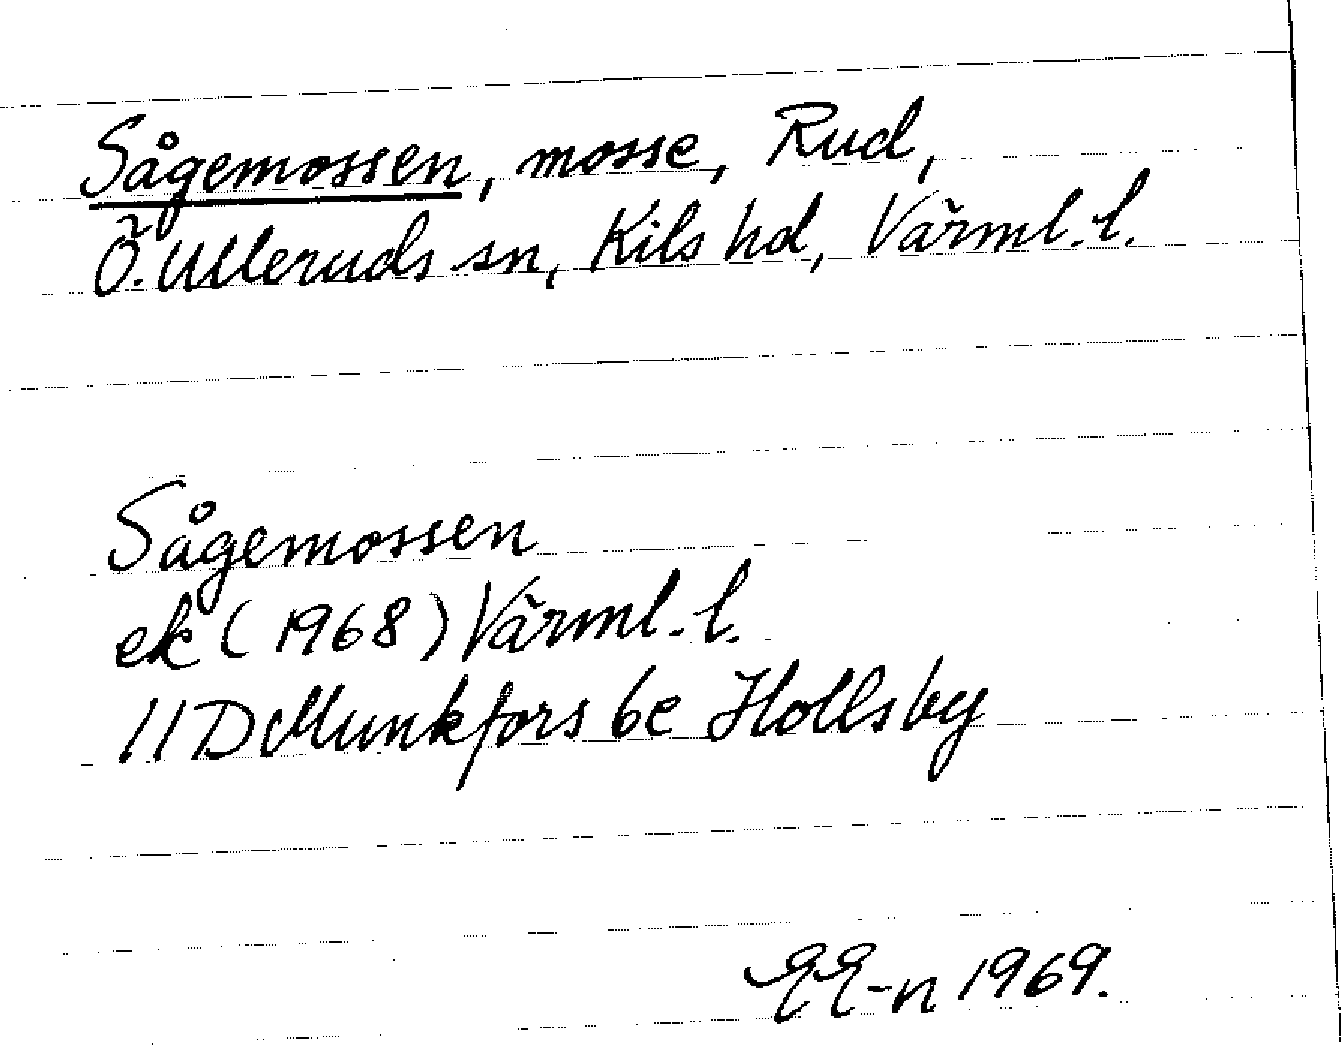 Sågemossen, mosse, Rud,
Ö. Ulleruds sn, Kils hd, Värml. l.
Sågemossen
ek (1968) Värml. l.
11D Munkfors 6e Hollsby
EE-n 1969.